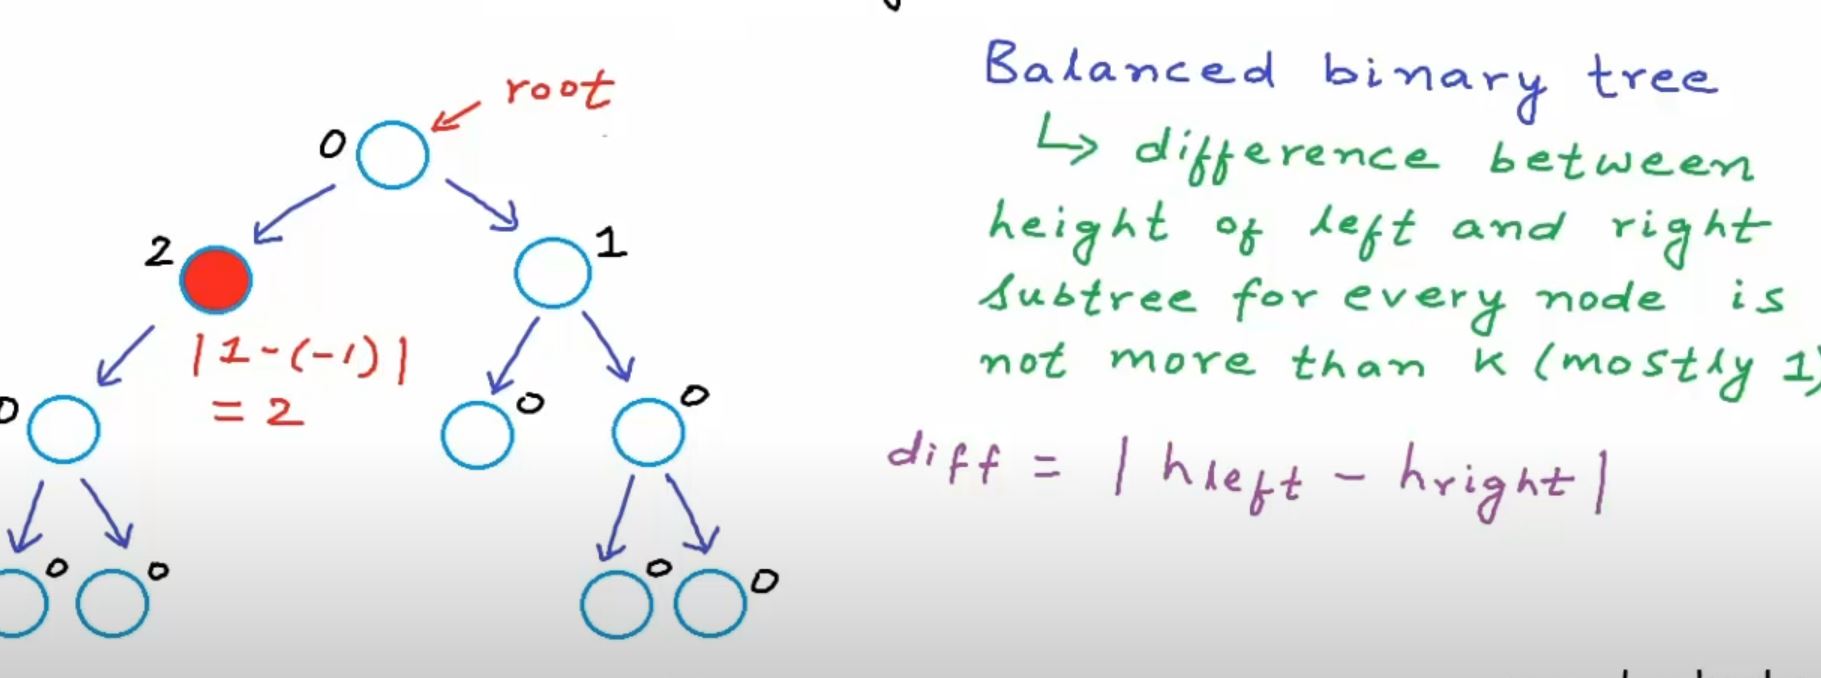 root
0
2
1
|1-(-1)|
= 2
0
0
0
0
0
0
Balanced binary tree
↳ difference between
height of left and right
subtree for every node is
not more than k (mostly 1)
diff = | hleft - hright |